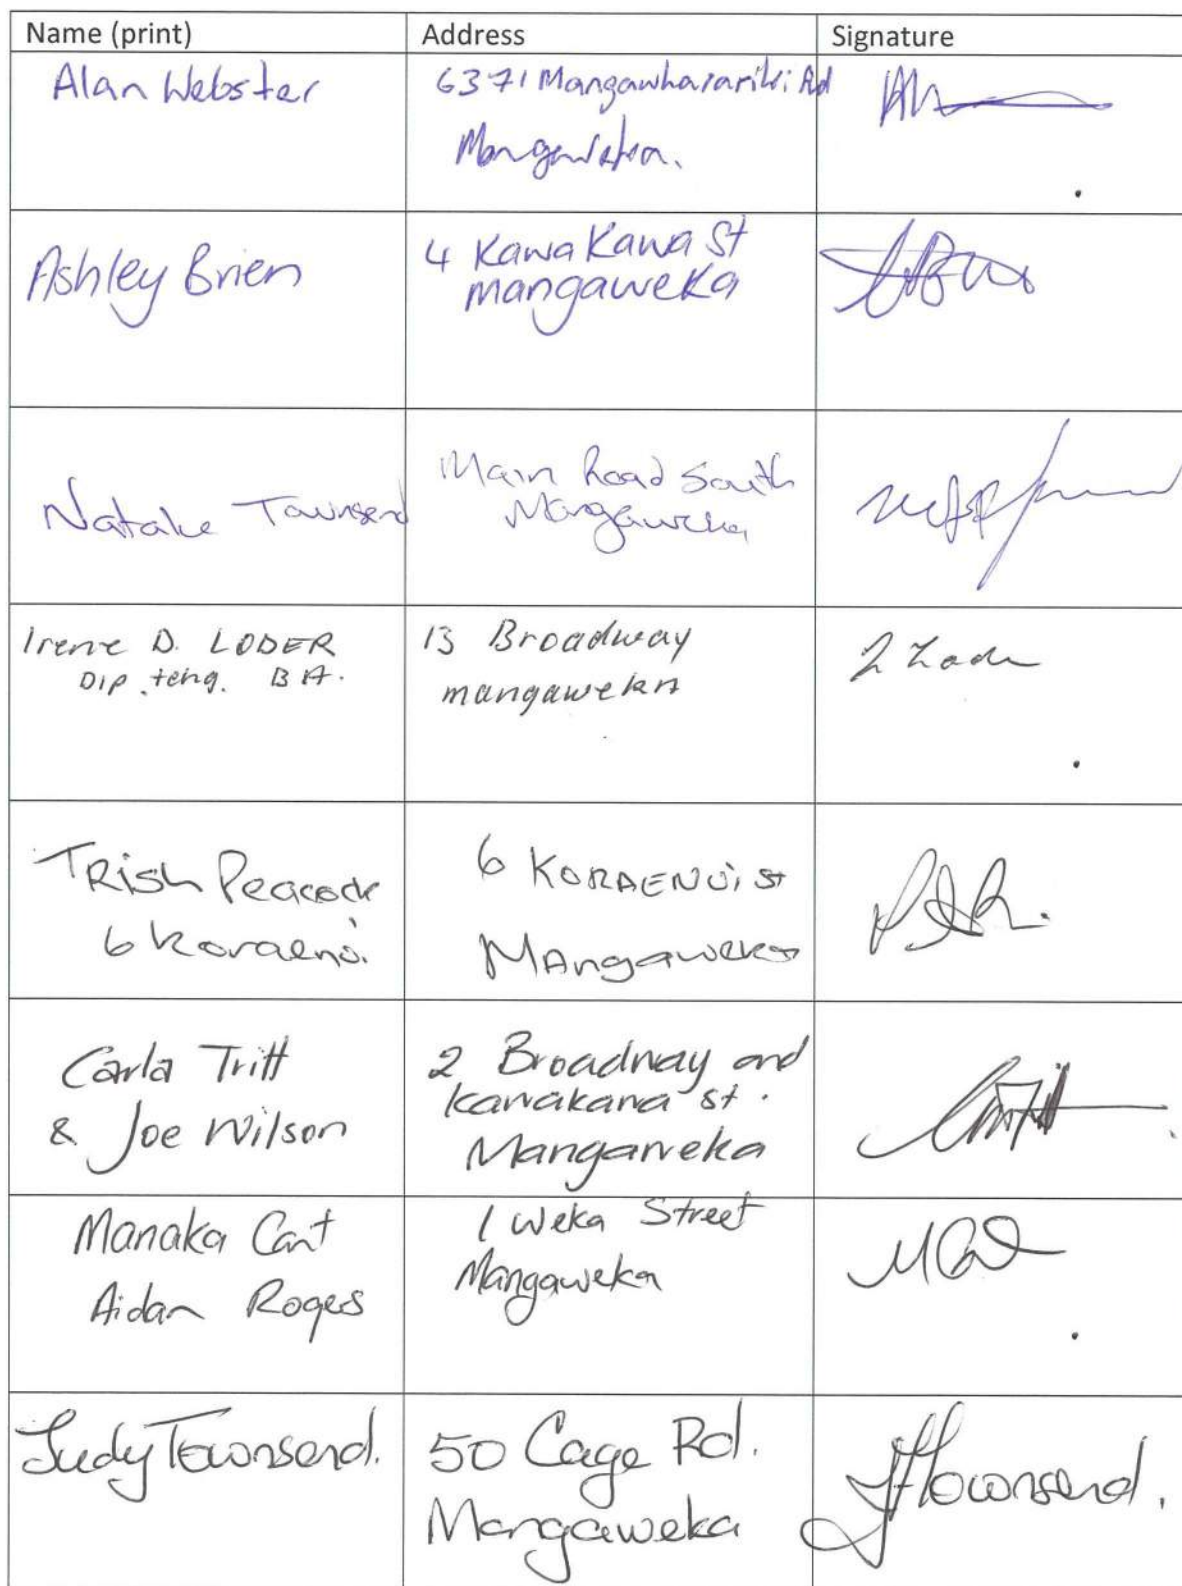 Name (print) Address Signature
Alan Webster
6371 Mangawharariki Rd
Ashley Brien
4 Kawa Kawa St
mangaweka
Natalie Townsend
Main Road South
Mangaweka
Irene D. LODER
DIP. tchg. BA.
13 Broadway
mangaweka
I Loder
TRish Peacock
6 Koraenui
6 KORAENUi st
MAngaweka
Carla Tritt
& Joe Wilson
2 Broadway and
Kawakawa st.
Mangaweka
Manaka Cant
Aidan Rogers
1 Weka Street
Mangaweka
Judy Townsend.
50 Cage Rd.
Mangaweka
JTownsend.